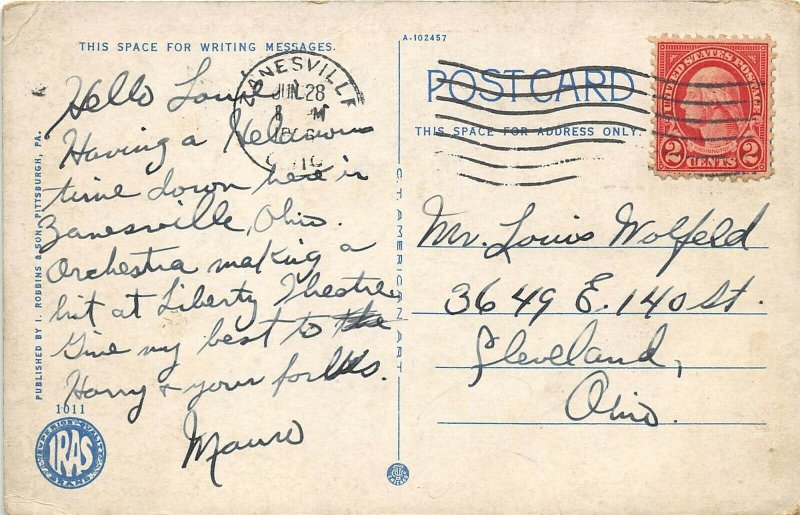 THIS SPACE FOR WRITING MESSAGES.
A-102457
Hello Louie
Having a
time down here in
Zanesville, Ohio.
Orchestra making a
hit at Liberty Theatre
Give my best to the
Harry + your folks.
Mauro
ZANESVILLE
JUN 28
8 M
OHIO
POST CARD
THIS SPACE FOR ADDRESS ONLY.
UNITED STATES POSTAGE
2 CENTS 2
Mr. Louis Wolfeld
3649 E. 140 St.
Cleveland,
Ohio.
PUBLISHED BY I. ROBBINS & SON, PITTSBURGH, PA.
C.T. AMERICAN ART
1011
SUPERIOR QUALITY
IRAS
BRAND